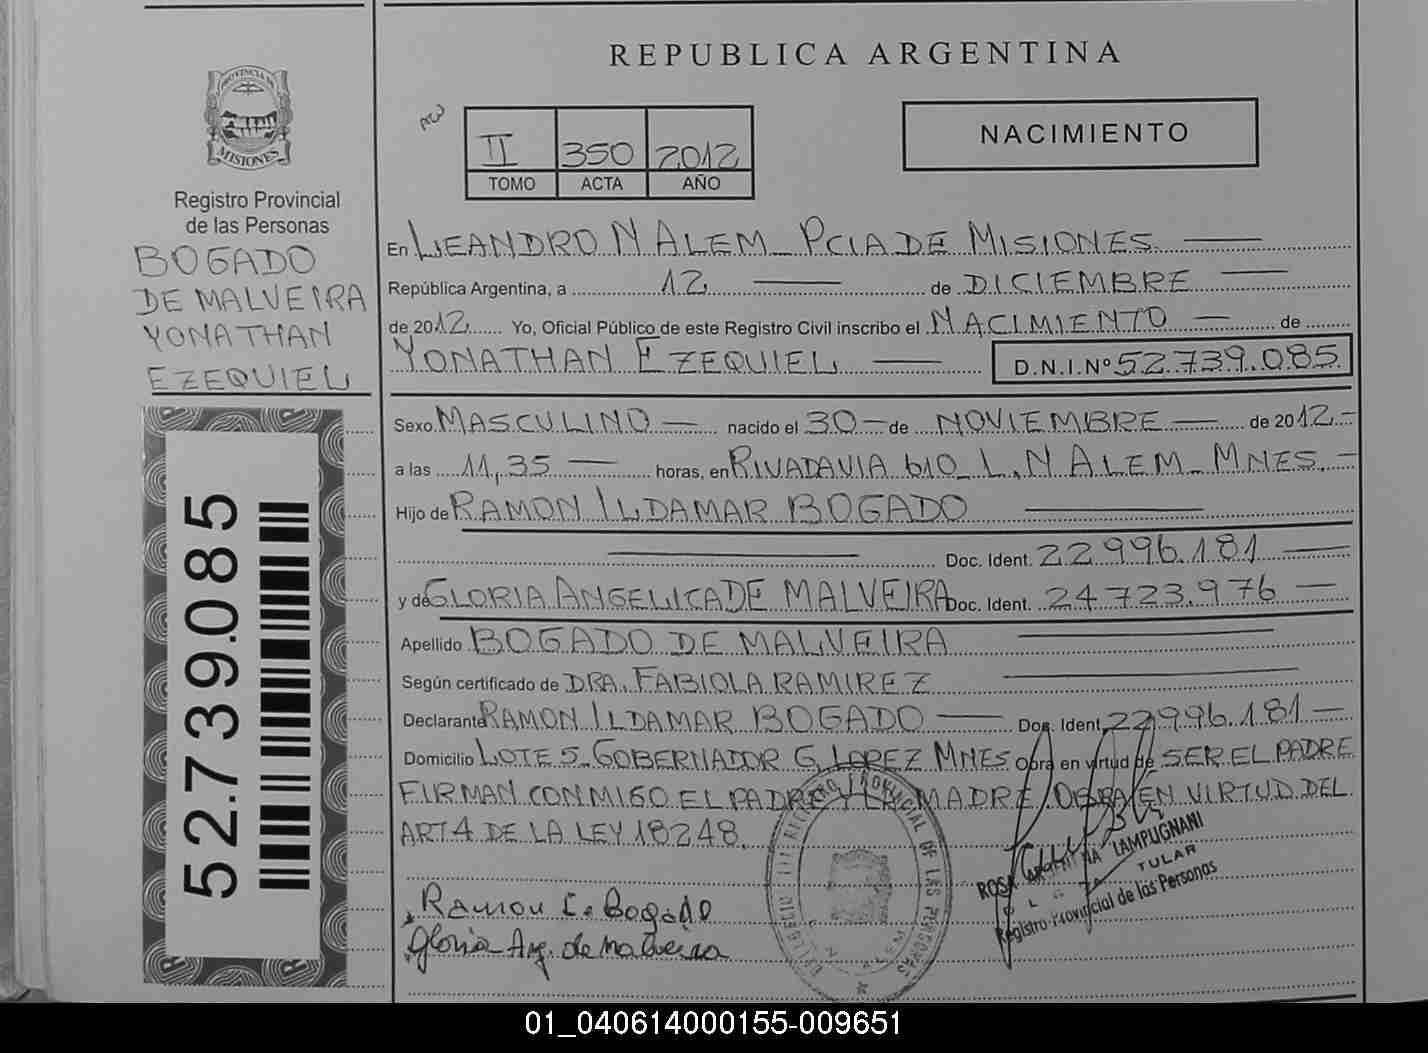 REPUBLICA ARGENTINA
PROVINCIA DE
MISIONES
Registro Provincial
de las Personas
BOGADO
DE MALVEIRA
YONATHAN
EZEQUIEL
52.739.085
II 350 2012
TOMO ACTA AÑO
NACIMIENTO
En LEANDRO N ALEM - PCIA DE MISIONES
República Argentina, a 12 de DICIEMBRE
de 2012 Yo, Oficial Público de este Registro Civil inscribo el NACIMIENTO de
YONATHAN EZEQUIEL D.N.I.Nº 52.739.085
Sexo MASCULINO nacido el 30 de NOVIEMBRE de 2012
a las 11,35 horas, en RIVADAVIA 610 - L. N ALEM - MNES.
Hijo de RAMON ILDAMAR BOGADO
Doc. Ident. 22.996.181
y de GLORIA ANGELICA DE MALVEIRA Doc. Ident. 24.723.976
Apellido BOGADO DE MALVEIRA
Según certificado de DRA. FABIOLA RAMIREZ
Declarante RAMON ILDAMAR BOGADO Doc. Ident. 22.996.181
Domicilio LOTE 5 - GOBERNADOR G. LOPEZ MNES Obra en virtud de SER EL PADRE
FIRMAN CONMIGO EL PADRE Y LA MADRE / OBRA EN VIRTUD DEL
ART 4 DE LA LEY 18248.
Ramon I. Bogado
Gloria Ang. de Malveira
REGISTRO PROVINCIAL DE LAS PERSONAS
ROSA LAMPUGNANI
TULAR
Registro Provincial de las Personas
01_040614000155-009651